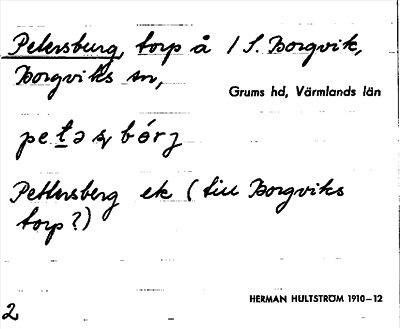 Petersburg, torp å / S. Borgvik,
Borgviks sn,
Grums hd, Värmlands län
Pettersberg ek (till Borgviks
torp?)
HERMAN HULTSTRÖM 1910–12
2